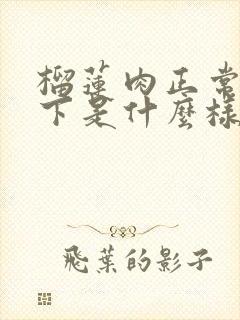 榴蓮肉正常
下是什麼樣
飛葉的影子